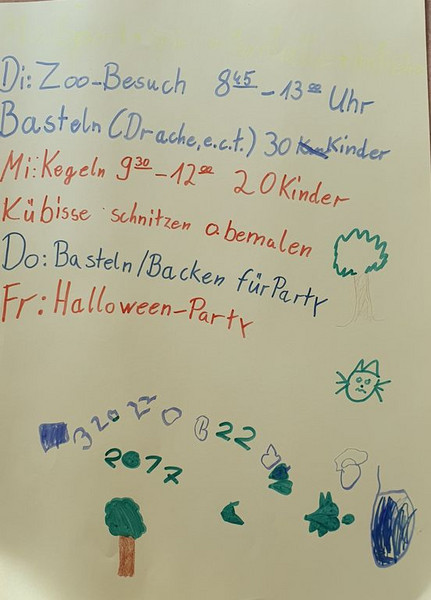 Di: Zoo-Besuch 8⁴⁵-13⁰⁰ Uhr
Basteln (Drache, e.c.t.) 30 Kinder
Mi: Kegeln 9³⁰-12⁰⁰ 20 Kinder
Kübisse schnitzen abemalen
Do: Basteln/Backen für Party
Fr: Halloween-Party
22
2017